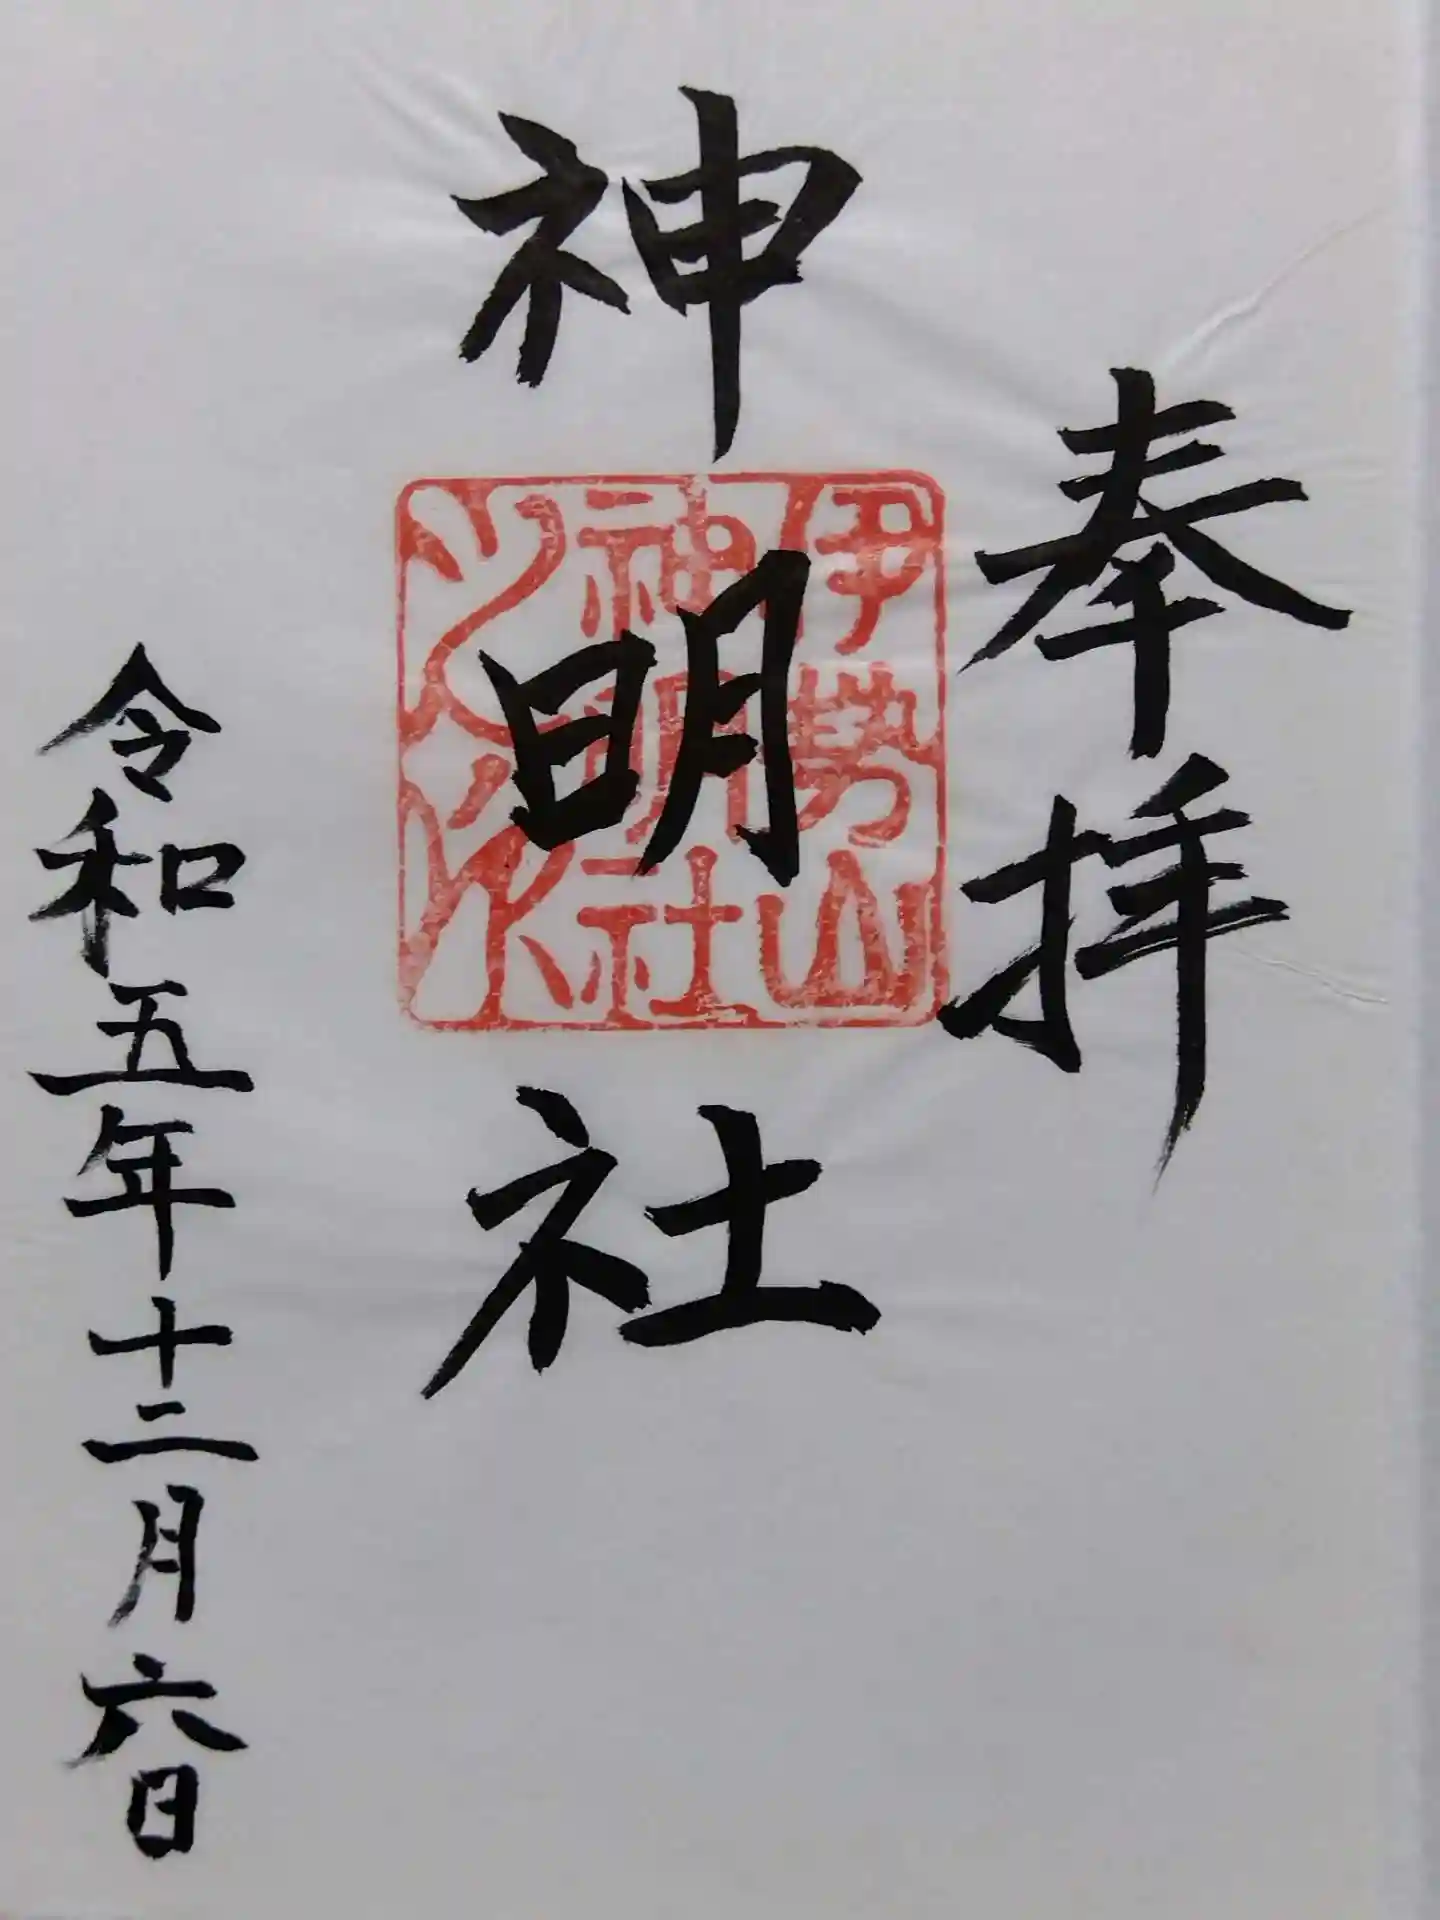 奉拝
神明社
伊勢山
神明社
之
令和五年十二月六日